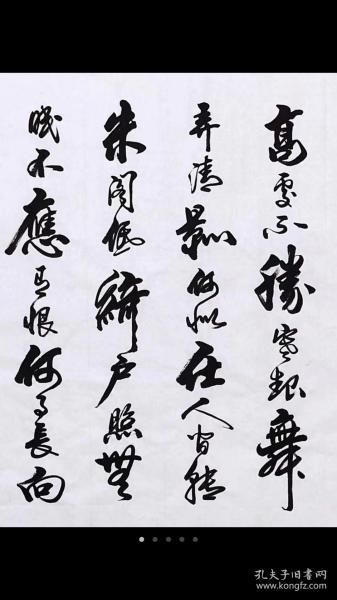 高處不勝寒起舞
弄清影何似在人間轉
朱閣低綺戶照無
眠不應有恨何事長向
孔夫子旧书网
www.kongfz.com